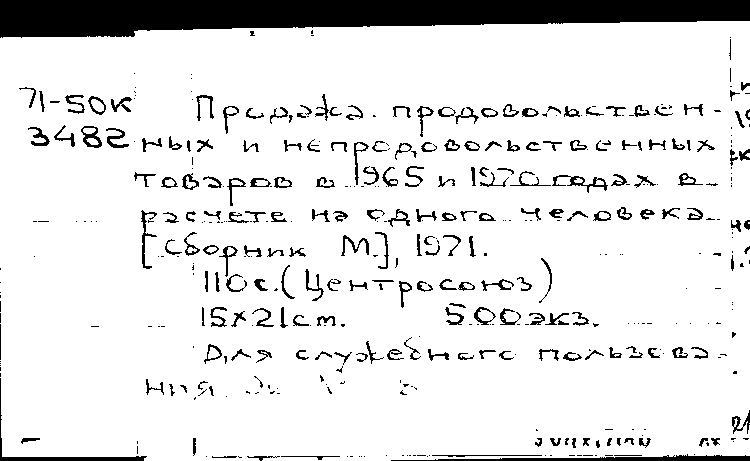 71-50к
3482
Продажа продовольствен-
ных и непродовольственных
товаров в 1965 и 1970 годах в
расчете на одного человека.
[Сборник М.], 1971.
110 с. (Центросоюз)
15x21 см. 500 экз.
Для служебного пользова-
ния